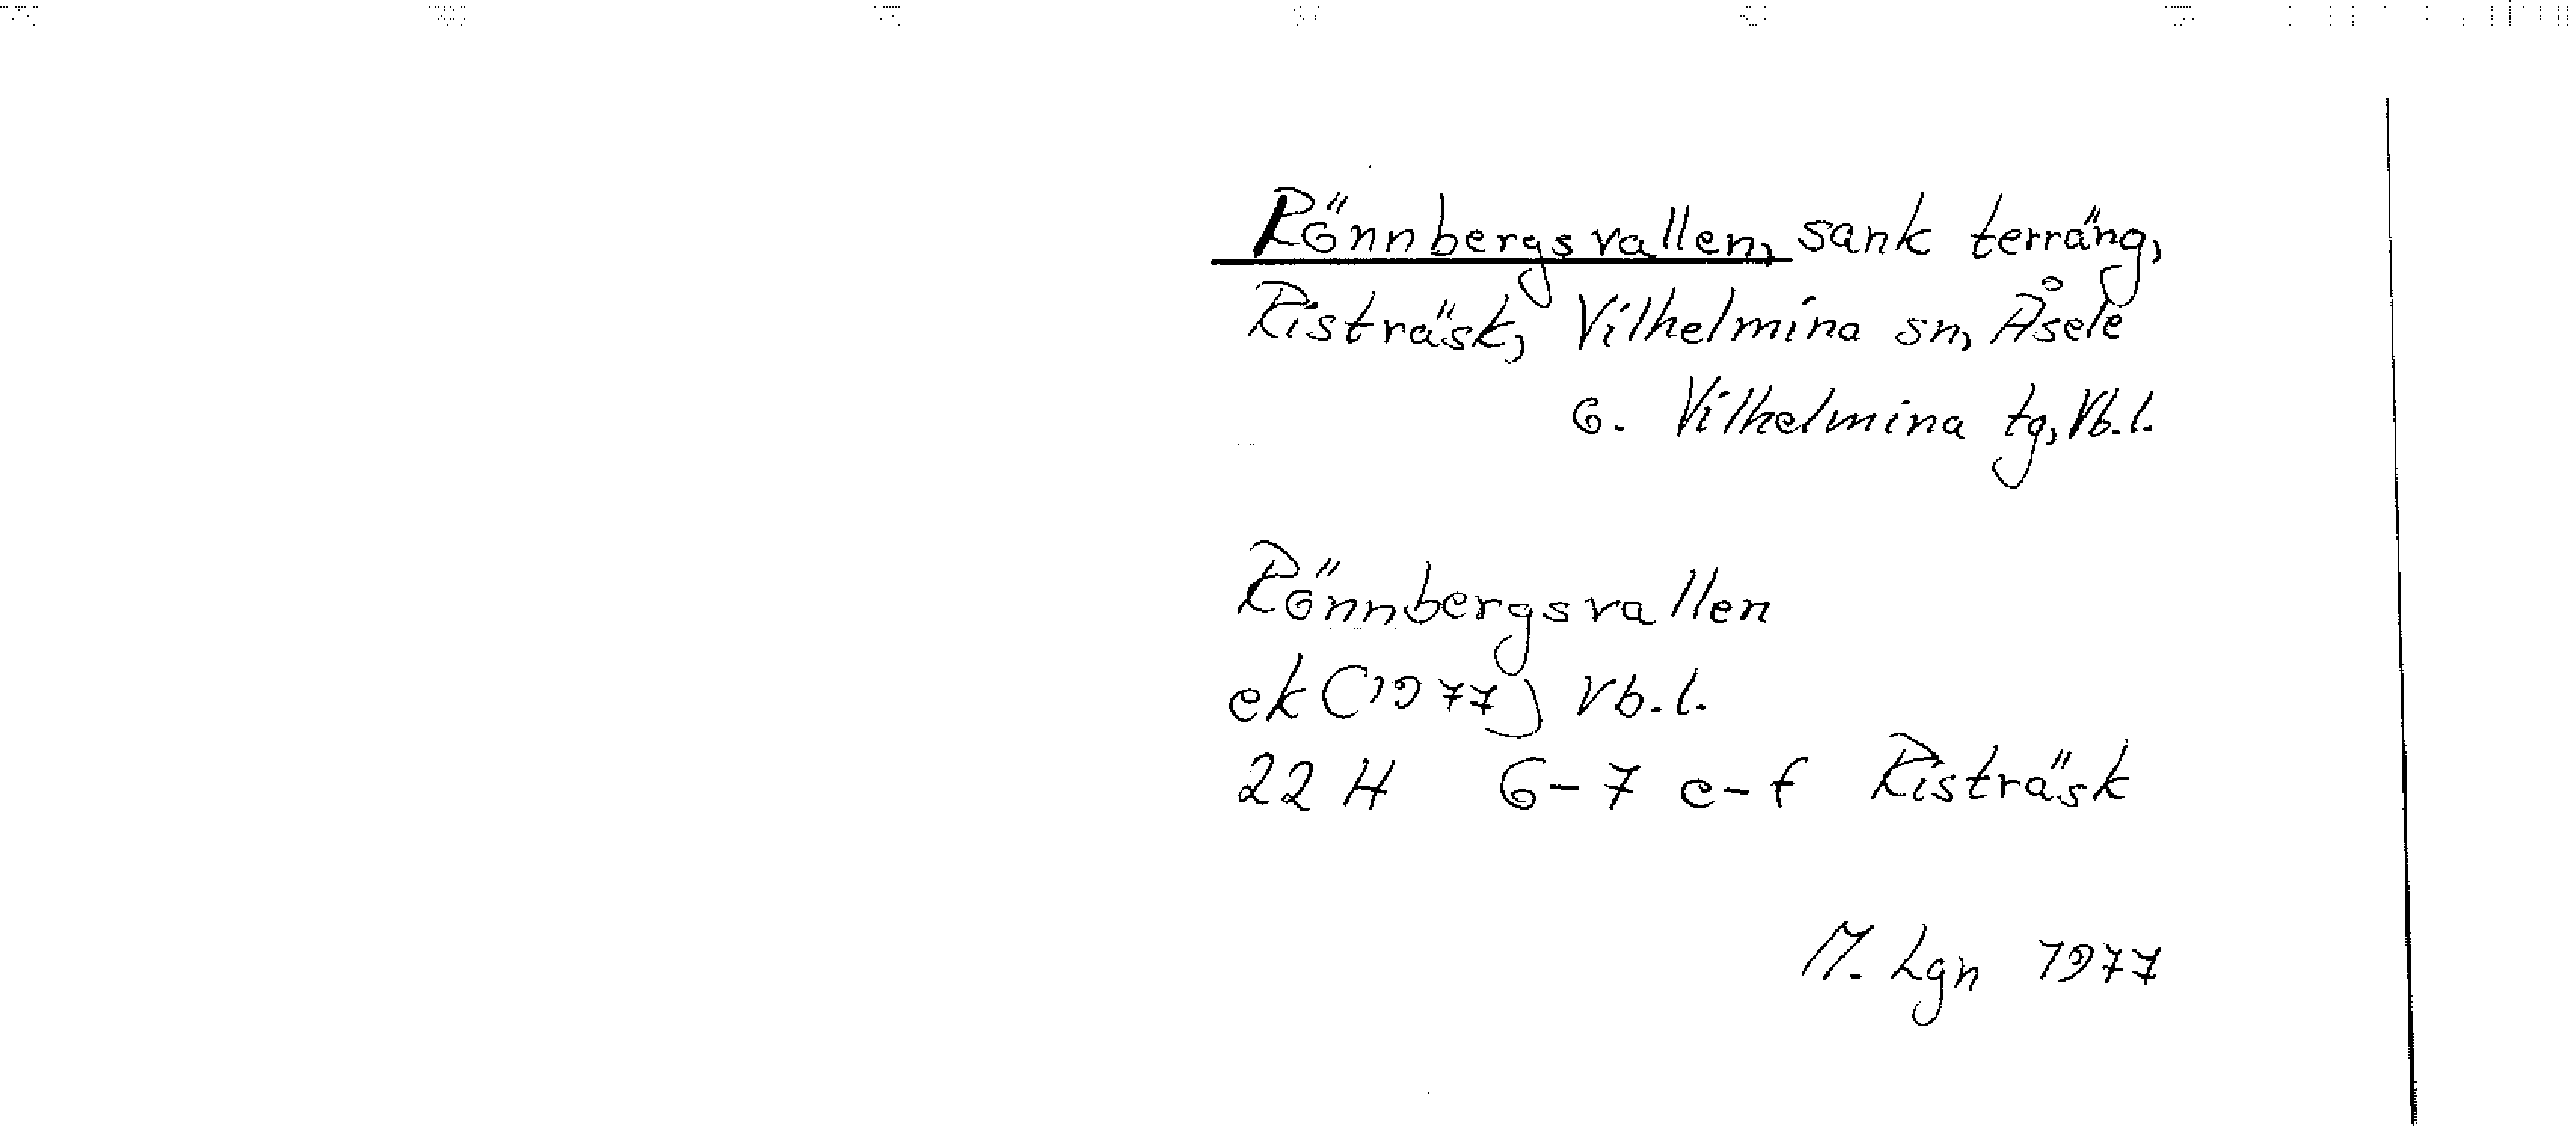 Rönnbergsvallen, sank terräng,
Risträsk, Vilhelmina sn, Åsele
o. Vilhelmina tg, Vb.l.
Rönnbergsvallen
ek (1977) Vb.l.
22 H 6-7 e-f Risträsk
M. Lgn 1977